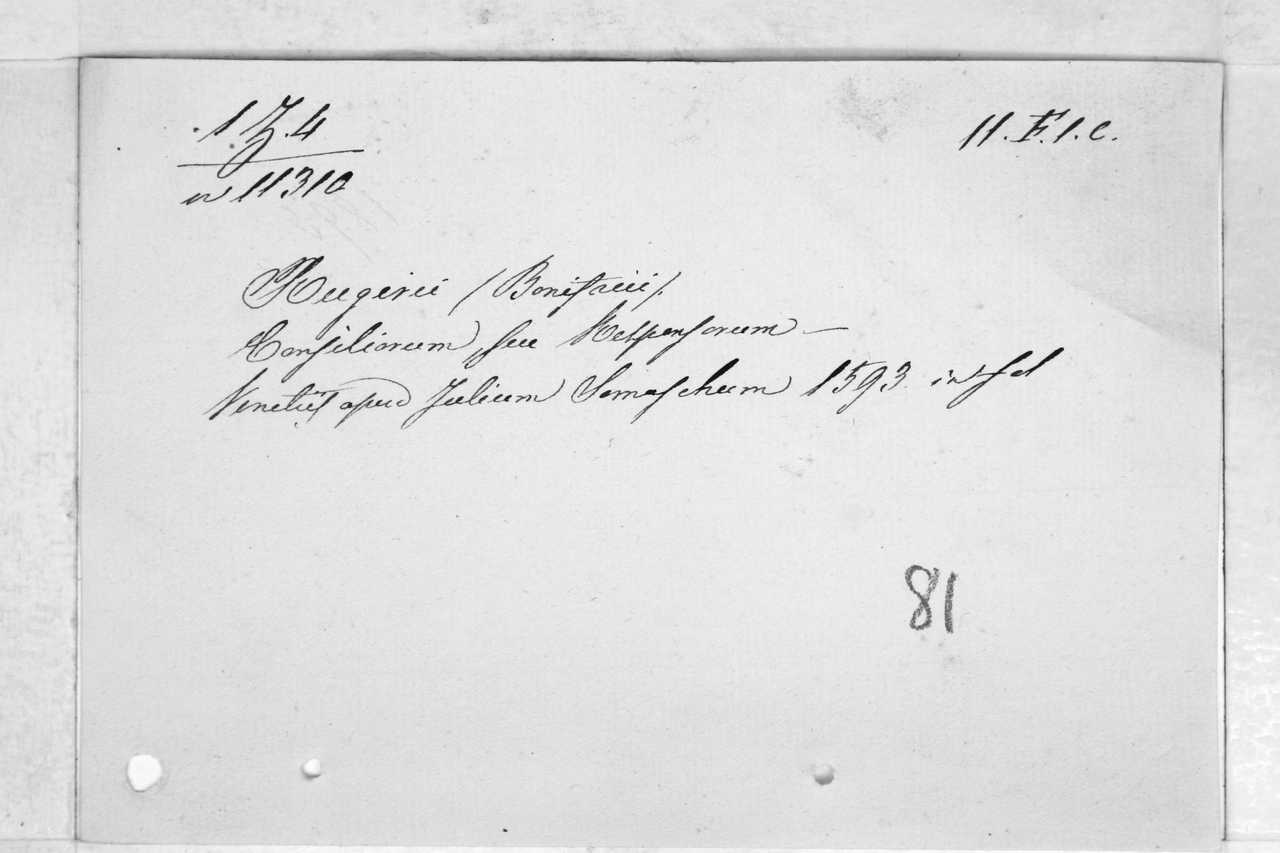 1 Z. 4
11. F. 1. c.
n 11310
Rugerii (Bonifacii).
Consiliorum, seu Responsorum —
Venetiis apud Julium Somaschum 1593. in fol
81